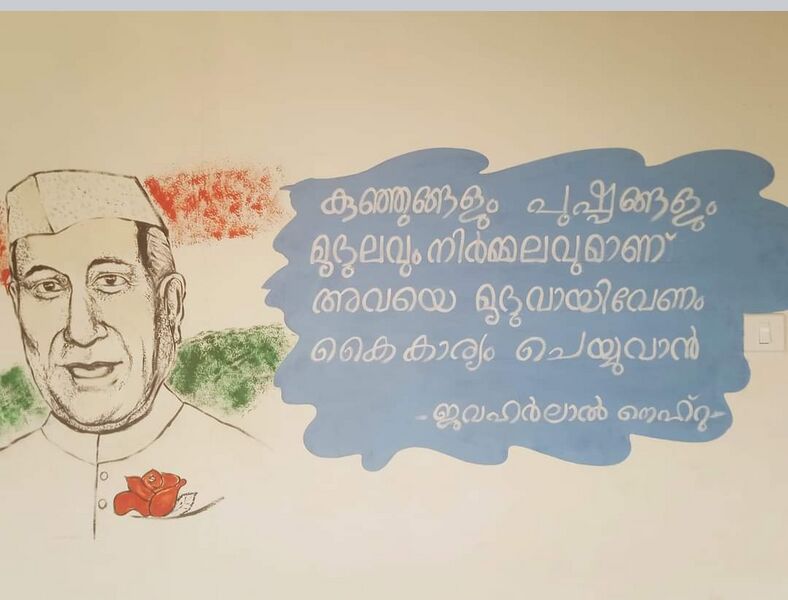 കുഞ്ഞുങ്ങളും പുഷ്പങ്ങളും
മൃദുലവും നിർമ്മലവുമാണ്
അവയെ മൃദുവായിവേണം
കൈകാര്യം ചെയ്യുവാൻ
-ജവഹർലാൽ നെഹ്റു-